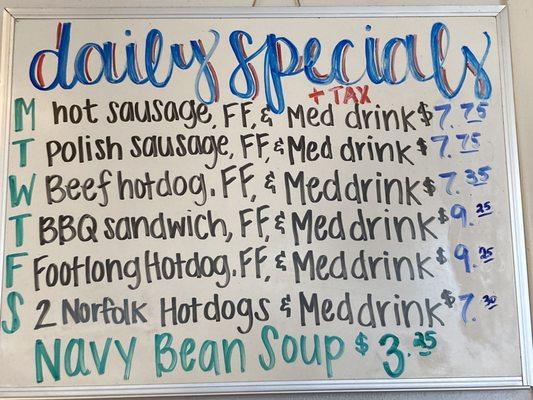 daily specials
+ TAX
M hot sausage, FF, & Med drink $7.75
T Polish sausage, FF, & Med drink $7.75
W Beef hotdog, FF, & Med drink $7.35
T BBQ sandwich, FF, & Med drink $9.25
F Footlong Hotdog, FF, & Med drink $9.25
S 2 Norfolk Hotdogs & Med drink $7.30
Navy Bean Soup $3.25